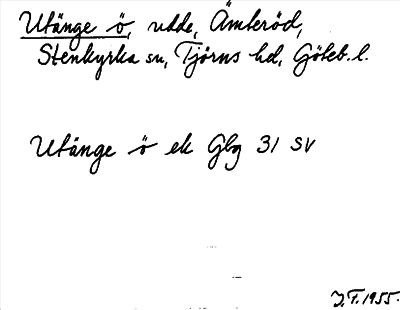 Utänge ö, udde, Ämteröd,
Stenkyrka sn, Tjörns hd, Göteb. l.
Utänge ö ek Gbg 31 SV
J.T. 1955.